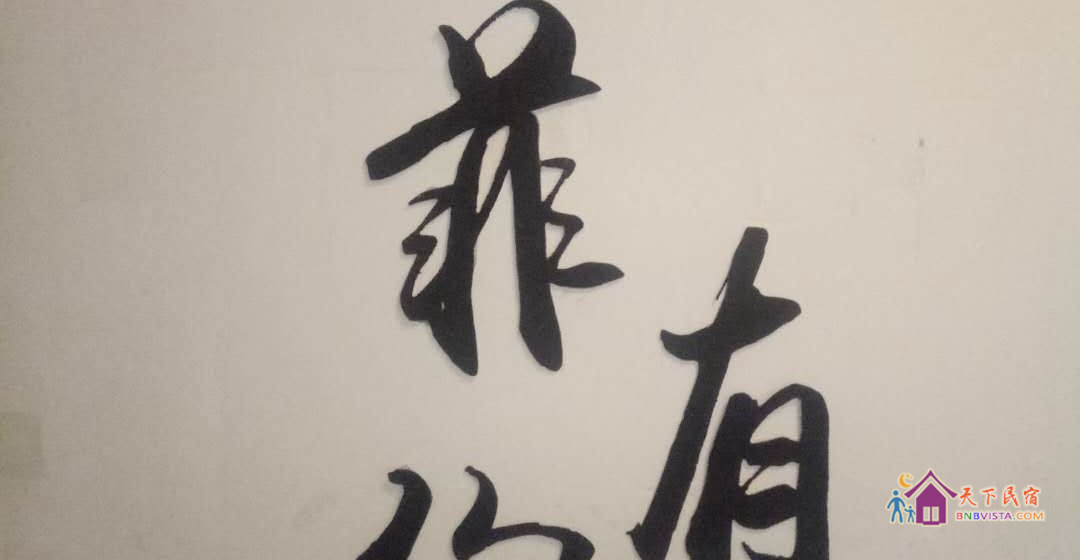 菲
有
天下民宿
BNBVISTA.COM